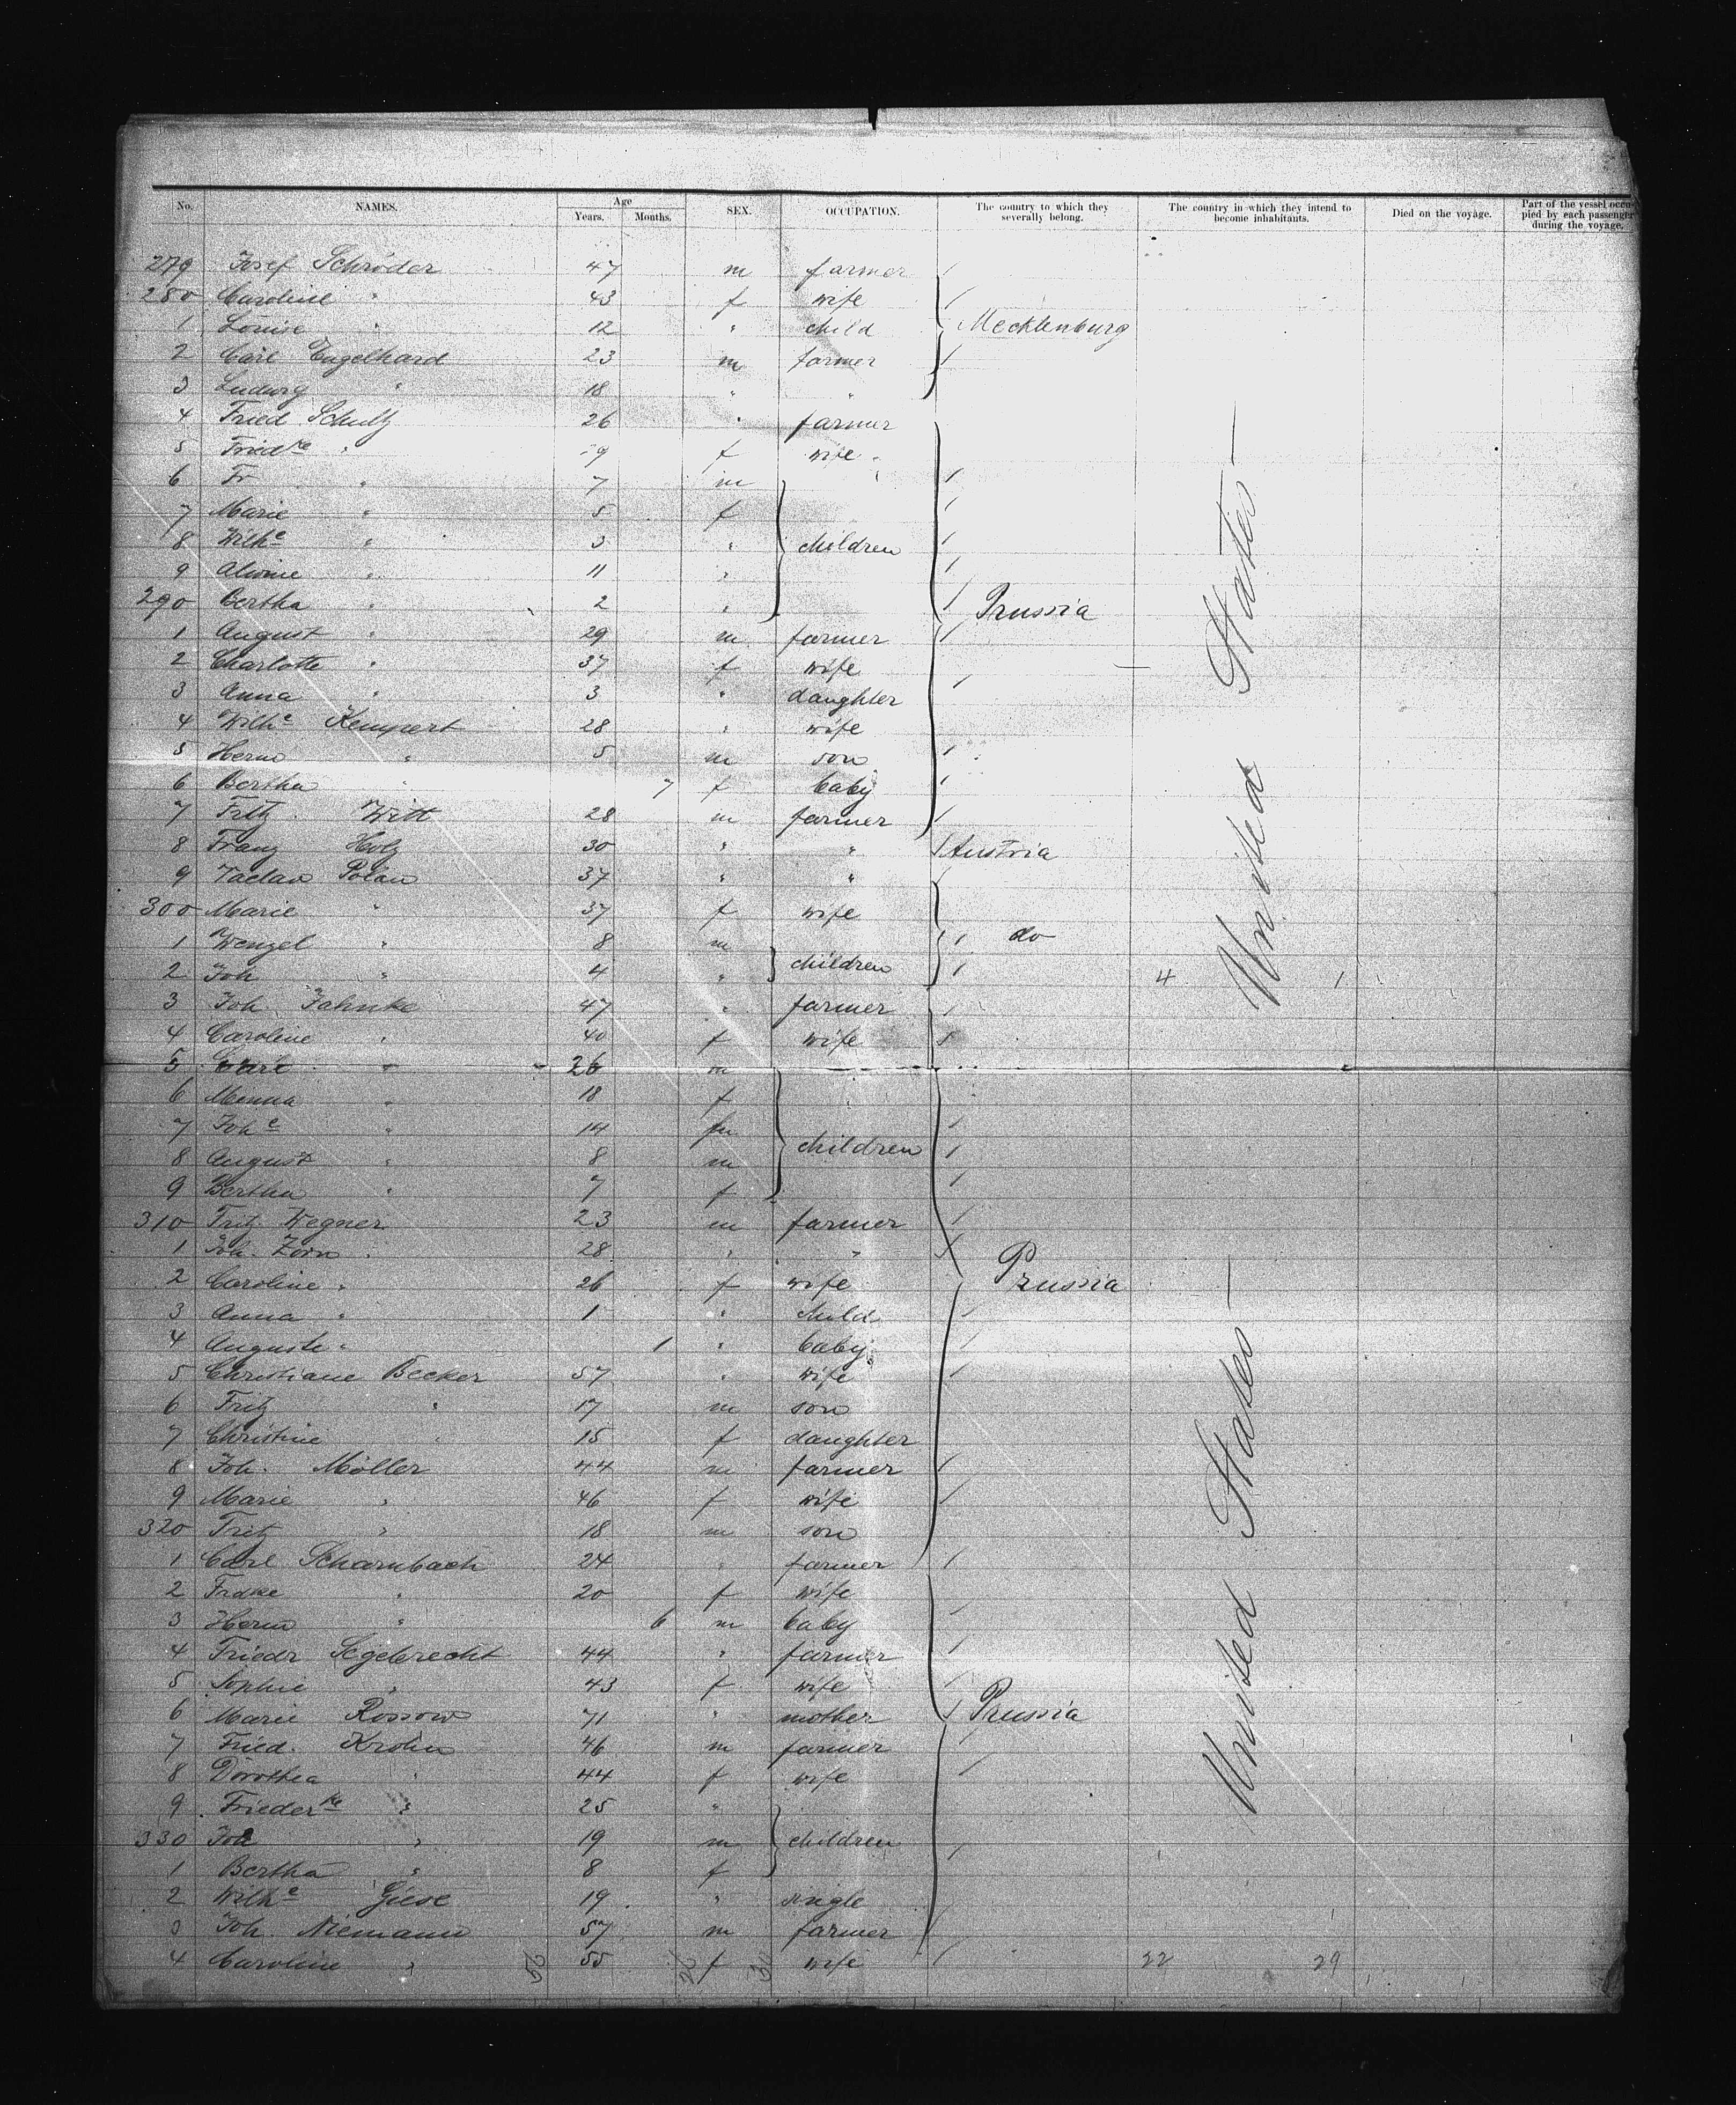 No. NAMES. Age Years. Months. SEX. OCCUPATION. The country to which they severally belong. The country in which they intend to become inhabitants. Died on the voyage. Part of the vessel occupied by each passenger during the voyage.
279 Josef Schröder 47 m farmer
280 Caroline " 43 f wife
1 Louise " 12 " child Mecklenburg
2 Carl Engelhard 23 m farmer
3 Ludwig " 18 " "
4 Fried Schultz 26 " farmer
5 Friedke " 9 f wife
6 Fr " 7 m
7 Marie " 5 f
8 Wilhe " 3 " children
9 Alwine " 11 "
290 Bertha " 2 " Prussia
1 August " 29 m farmer
2 Charlotte " 37 f wife
3 Anna " 3 " daughter
4 Wilhe Kempert 28 " wife
5 Herm " 5 m son
6 Bertha " 7 f baby
7 Fritz Witt 28 m farmer
8 Franz Holz 30 " " Austria
9 Vaclav Polan 37 " "
300 Marie " 37 f wife
1 Wenzel " 8 m do
2 Joh " 4 " children 4 1
United States
3 Joh. Jahnke 47 " farmer
4 Caroline " 40 f wife
5 Carl " 26 m
6 Menna " 18 f
7 Johe " 14 m
8 August " 8 m children
9 Bertha " 7 f
310 Fritz Wegner 23 m farmer
1 Joh. Zorn 28 " "
2 Caroline " 26 f wife Prussia
3 Anna " 1 " child
4 Auguste " 1 " baby
5 Christiane Becker 57 " wife
6 Fritz " 17 m son
7 Christine " 15 f daughter
8 Joh. Möller 44 m farmer
9 Marie " 46 f wife
320 Fritz " 18 m son
1 Carl Scharnbach 24 " farmer
2 Fridke " 20 f wife
3 Herm " 6 m baby
4 Friedr Segebrecht 44 " farmer
5 Sophie " 43 f wife
6 Marie Rossow 71 " mother Prussia
7 Fried. Krohn 46 m farmer
8 Dorothea " 44 f wife
9 Friederke " 25 "
330 Joh " 19 m children
1 Bertha " 8 f
2 Wilhe Giese 19 " single
3 Joh. Niemann 57 m farmer
4 Caroline " 55 f wife 22 29
United States